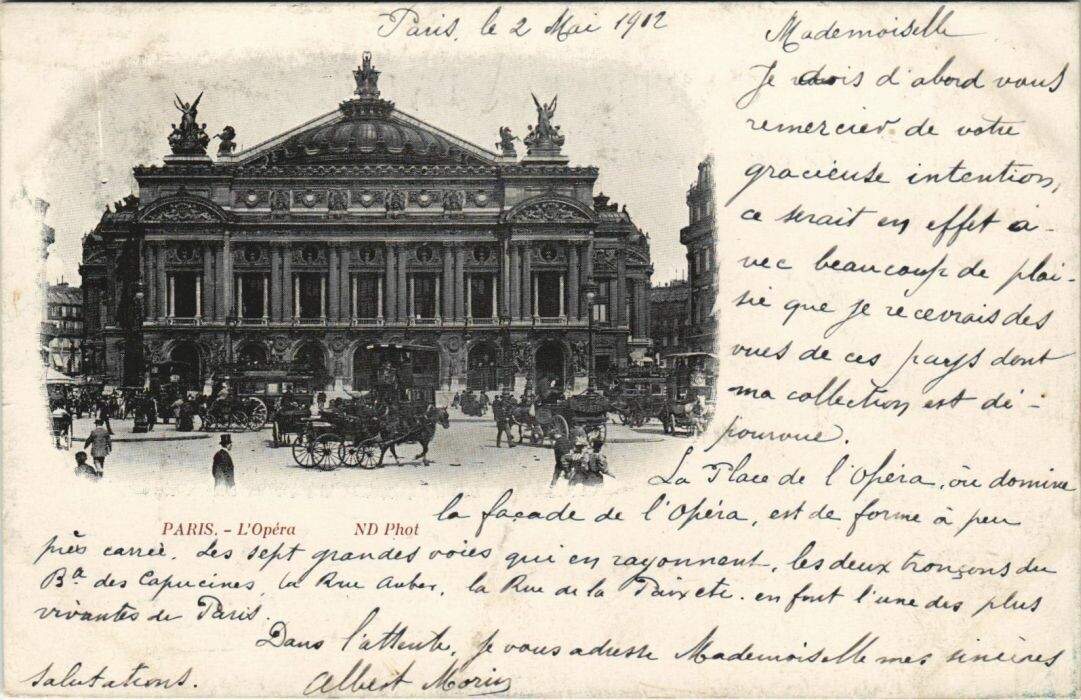 Paris, le 2 Mai 1912
Mademoiselle
Je dois d'abord vous
remercier de votre
gracieuse intention,
ce serait en effet a-
vec beaucoup de plai-
sir que je recevrais des
vues de ces pays dont
ma collection est dé-
pourvue.
La Place de l'Opéra, où domine
la façade de l'Opéra, est de forme à peu
près carrée. Les sept grandes voies qui en rayonnent, les deux tronçons du
Bd des Capucines, la Rue Auber, la Rue de la Paix etc. en font l'une des plus
vivantes de Paris.
Dans l'attente, je vous adresse Mademoiselle mes sincères
salutations. Albert Morin
PARIS. - L'Opéra ND Phot